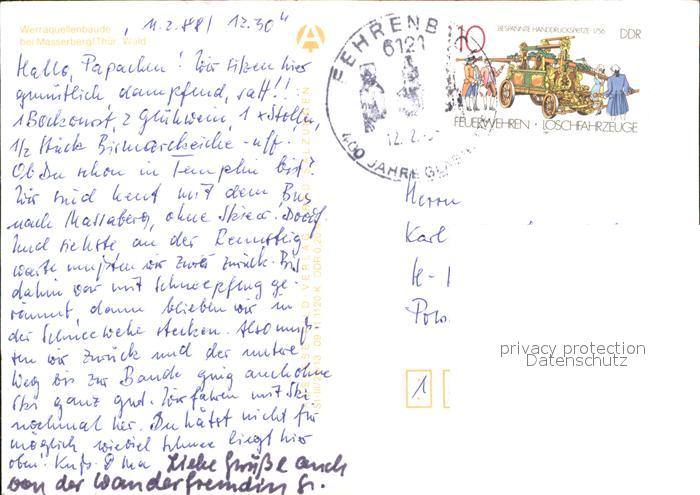 Werraquellenbaude
bei Masserberg/Thür. Wald
, 11.2.88/ 12.30"
Hallo, Papachen! Wir sitzen hier
gemütlich dampfend, satt!!
1 Bockwurst, 2 Glühwein, 1 x Stollen,
1/2 Stück Bismarckeiche - uff.
Ob Du schon in Templin bist?
Wir sind heut mit dem Bus
nach Massaberg, ohne Skier. Doof!
Und siehste an der Rennsteig
warte mußten wir zwar zurück. Bis
dahin war mit Schneepflug ge-
räumt, dann blieben wir in
der Schneewehe stecken. Also muß-
ten wir zurück und der untere
Weg bis zur Baude ging auch ohne
Ski ganz gut. Wir fahren mit Ski
nochmal her. Du hältst nicht für
möglich, wieviel Schnee liegt hier
oben. Kuß. Liebe Grüße auch
von der Wanderfreundin G.
FEHRENB
6121
12. 2.
400 JAHRE GLAS
10
BESPANNTE HANDDRUCKSPRITZE · 1756
DDR
FEUERWEHREN · LÖSCHFAHRZEUGE
Herrn
Karl
Pots
1
privacy protection
Datenschutz